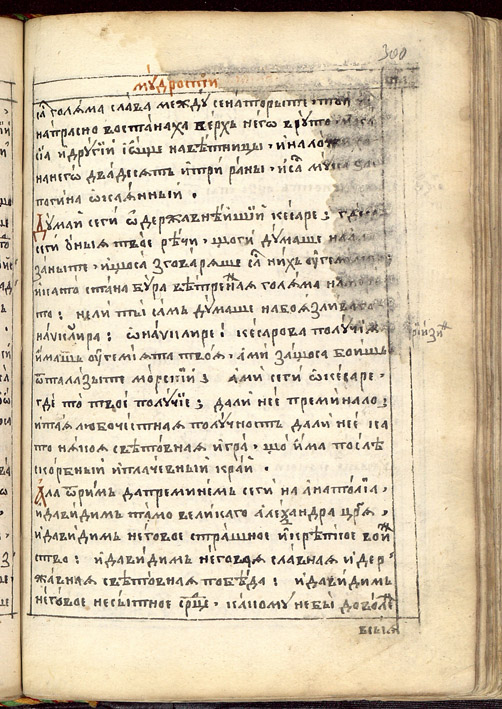 300
мꙋдрости
са голѧма слава междꙋ сенаторыте, тѹй
напрасно востанаха верхъ него врꙋто,
сїа и дрꙋгїи іѡще навѣтницы, и наложиха
на него двадесѧть и три раны, и са мꙋка
погина ѡкаѧнный.
Дꙋмай сеги ѡ державнѣйшїй кесаре; где
сеги ѹныѧ твое рѣчи, що ги дꙋмаше на
заныте, и що са зговарѧше са нихъ
и како стана бꙋра вѣтренаѧ голѧма на
то: нели ты самъ дꙋмаше на боѧзливаго
наѵклира: ѡ наѵклире! кесарова полꙋчїѧ
имашъ ѹ гемїѧта твоѧ, ами защо са боишъ
ѿ талазыте морскїи; ами сеги ѡ кесаре,
где то твое полꙋчїе; дали не е преминало;
и таѧ любочестнаѧ полꙋчность дали не е ка
то нѣкоѧ свѣтовнаѧ игра, що има послѣ
скорбный и плачевный край.
Ала ѿ римъ да преминемъ сеги на анатолїа,
и да видимъ тамо великаго алеѯандра црѧ,
и да видимъ негово е страшное и крепкое вой
ство: и да видимъ неговаѧ славнаѧ и дер
жавнаѧ свѣтовнаѧ побѣда: и да видимъ
неговое несытное срце, какомꙋ не бы доволе